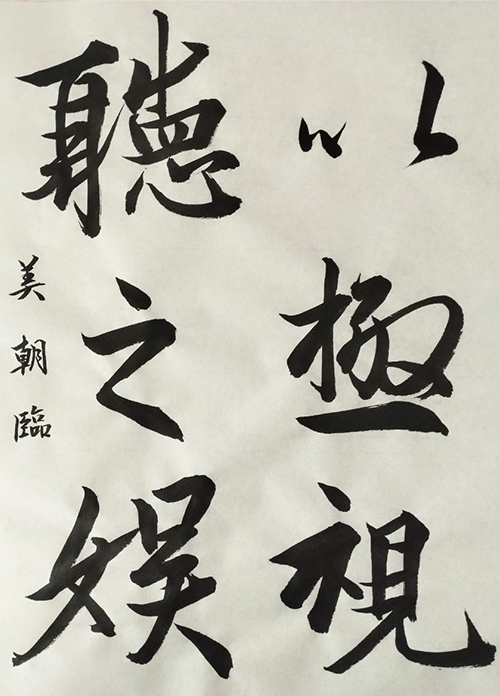 以極視
聽之娛
美朝臨